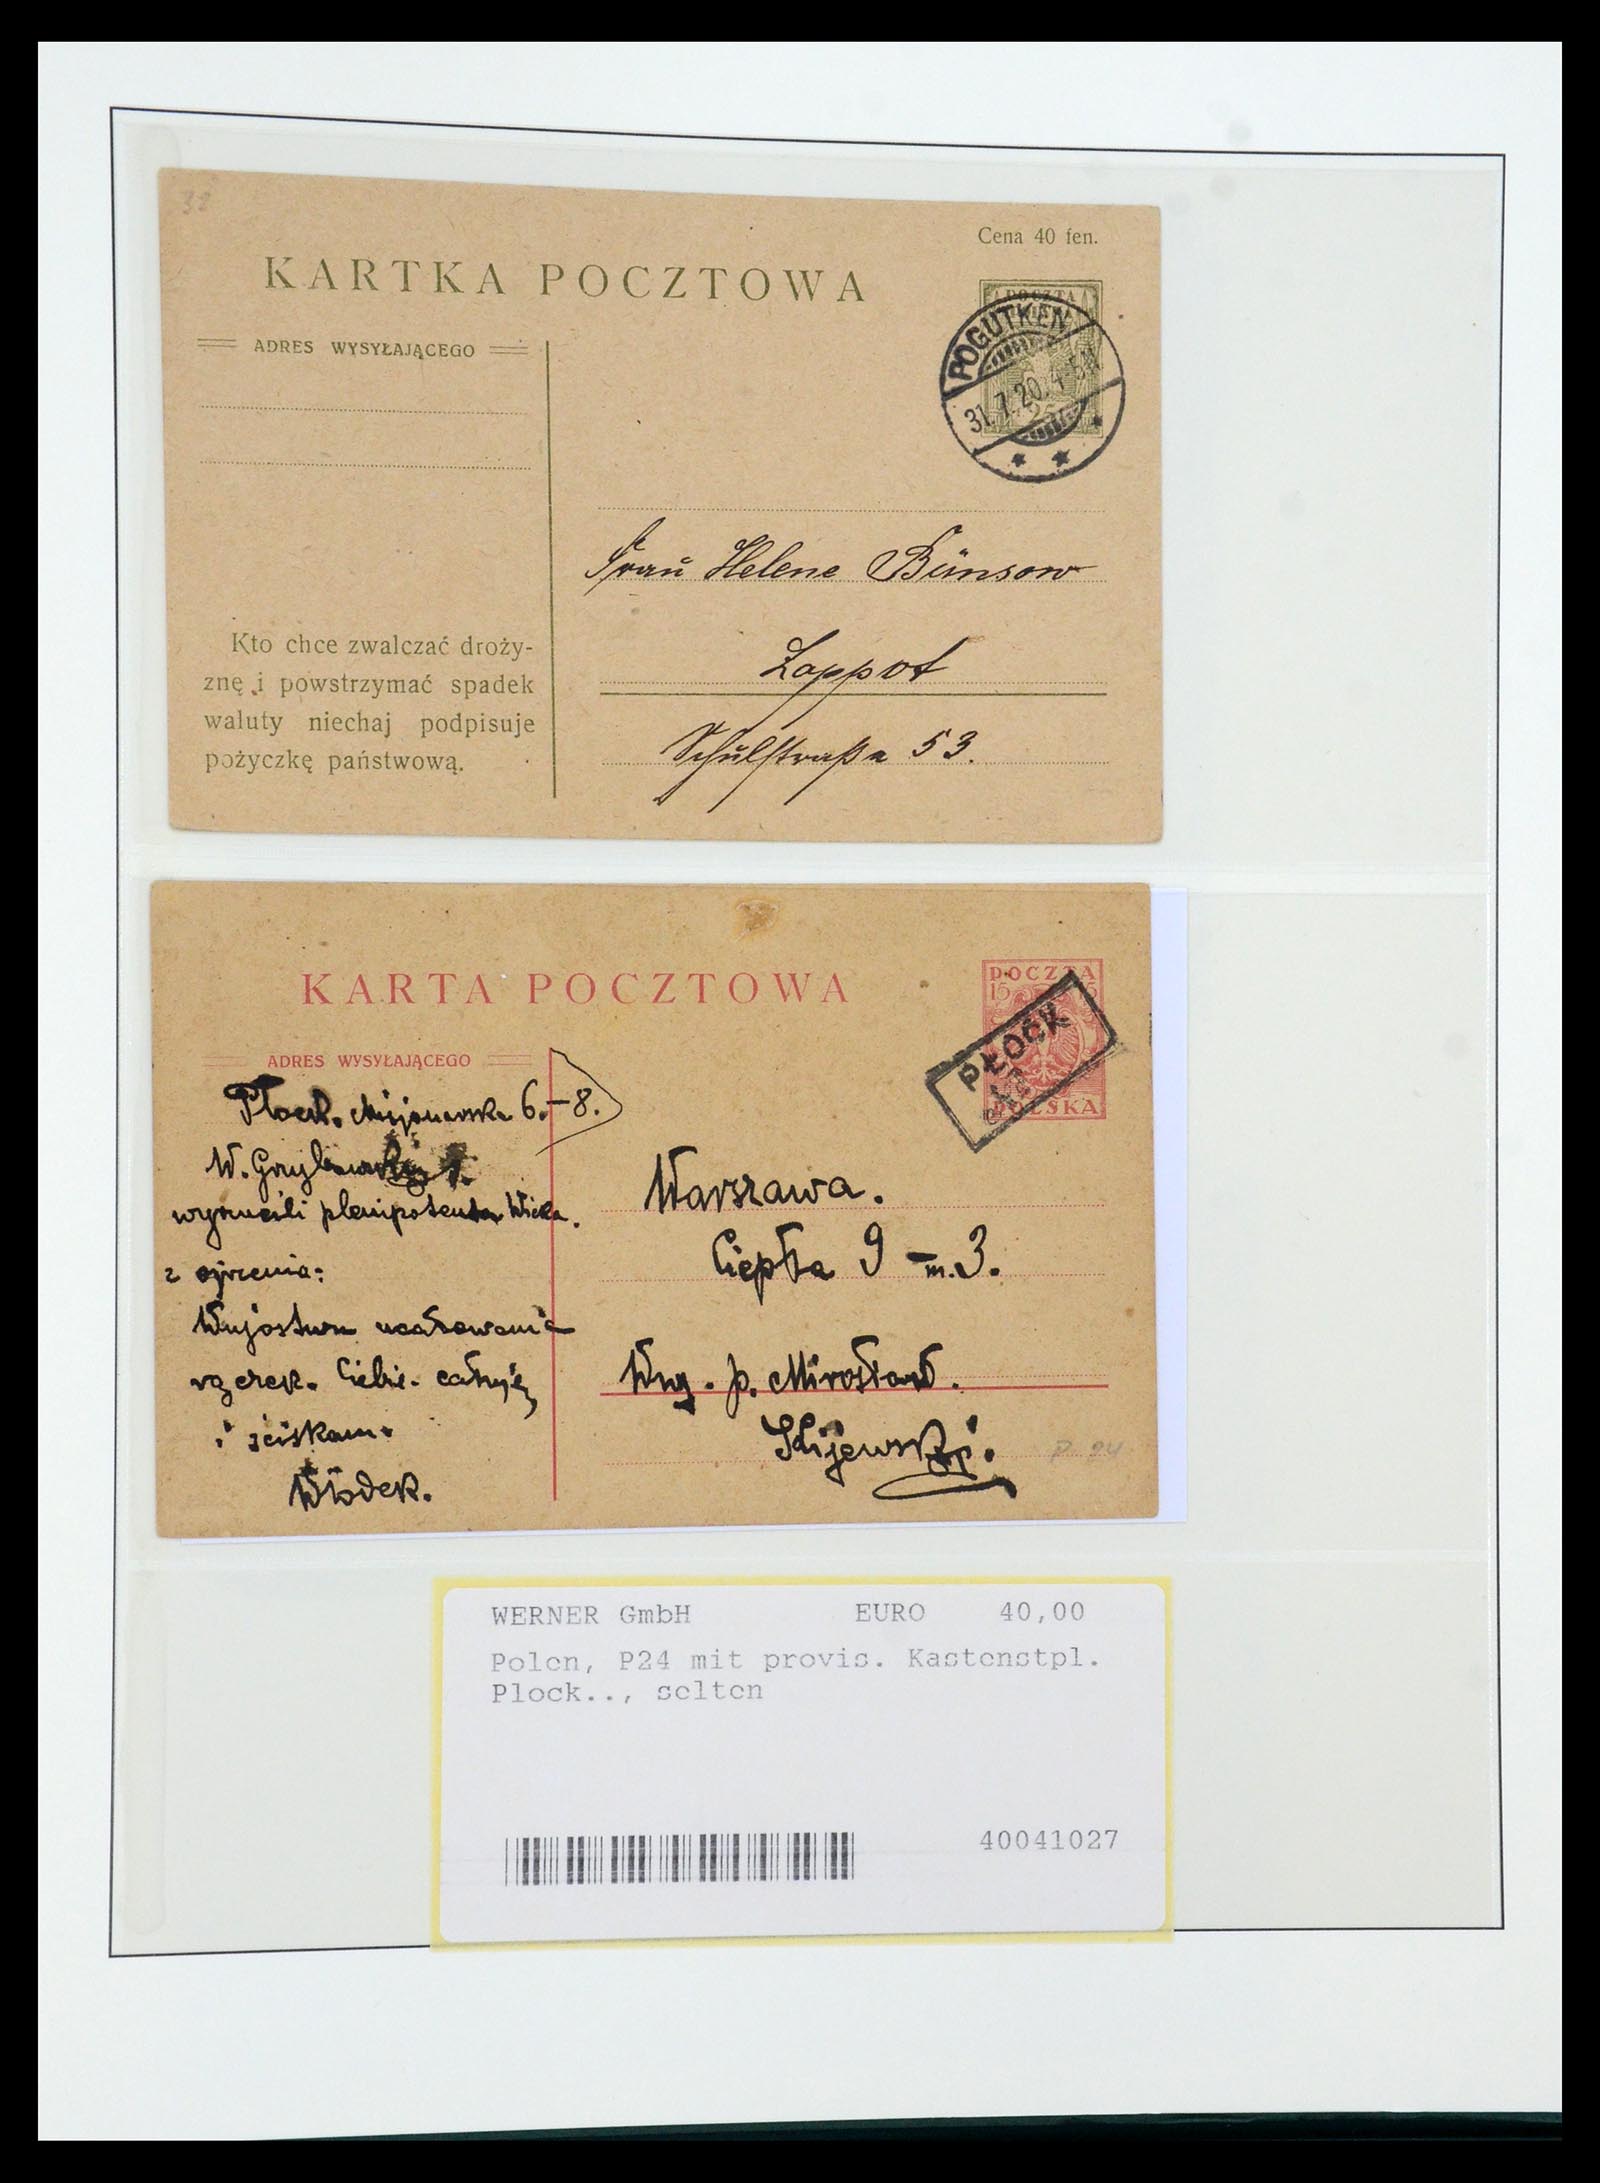 32
Cena 40 fen.
KARTKA POCZTOWA
ADRES WYSYŁAJĄCEGO
POCZTA
25
POGUTKEN
31.7.20. 4-5N
Frau Helene Bünsow
Zoppot
Schulstraße 53.
Kto chce zwalczać droży-
znę i powstrzymać spadek
waluty niechaj podpisuje
pożyczkę państwową.
KARTA POCZTOWA
ADRES WYSYŁAJĄCEGO
POCZTA
15 15
POLSKA
PŁOCK
Płock. 6.-8.
W.
plenipotenta
z
Wujostwu ucałowania
rączek. Ciebie całuję
i ściskam.
Włodek.
Warszawa.
Ciepła 9 m.3.
Wny. p. Mirosław.
Kijewski.
P 24
WERNER GmbH EURO 40,00
Polen, P24 mit provis. Kastenstpl.
Plock.., selten
40041027